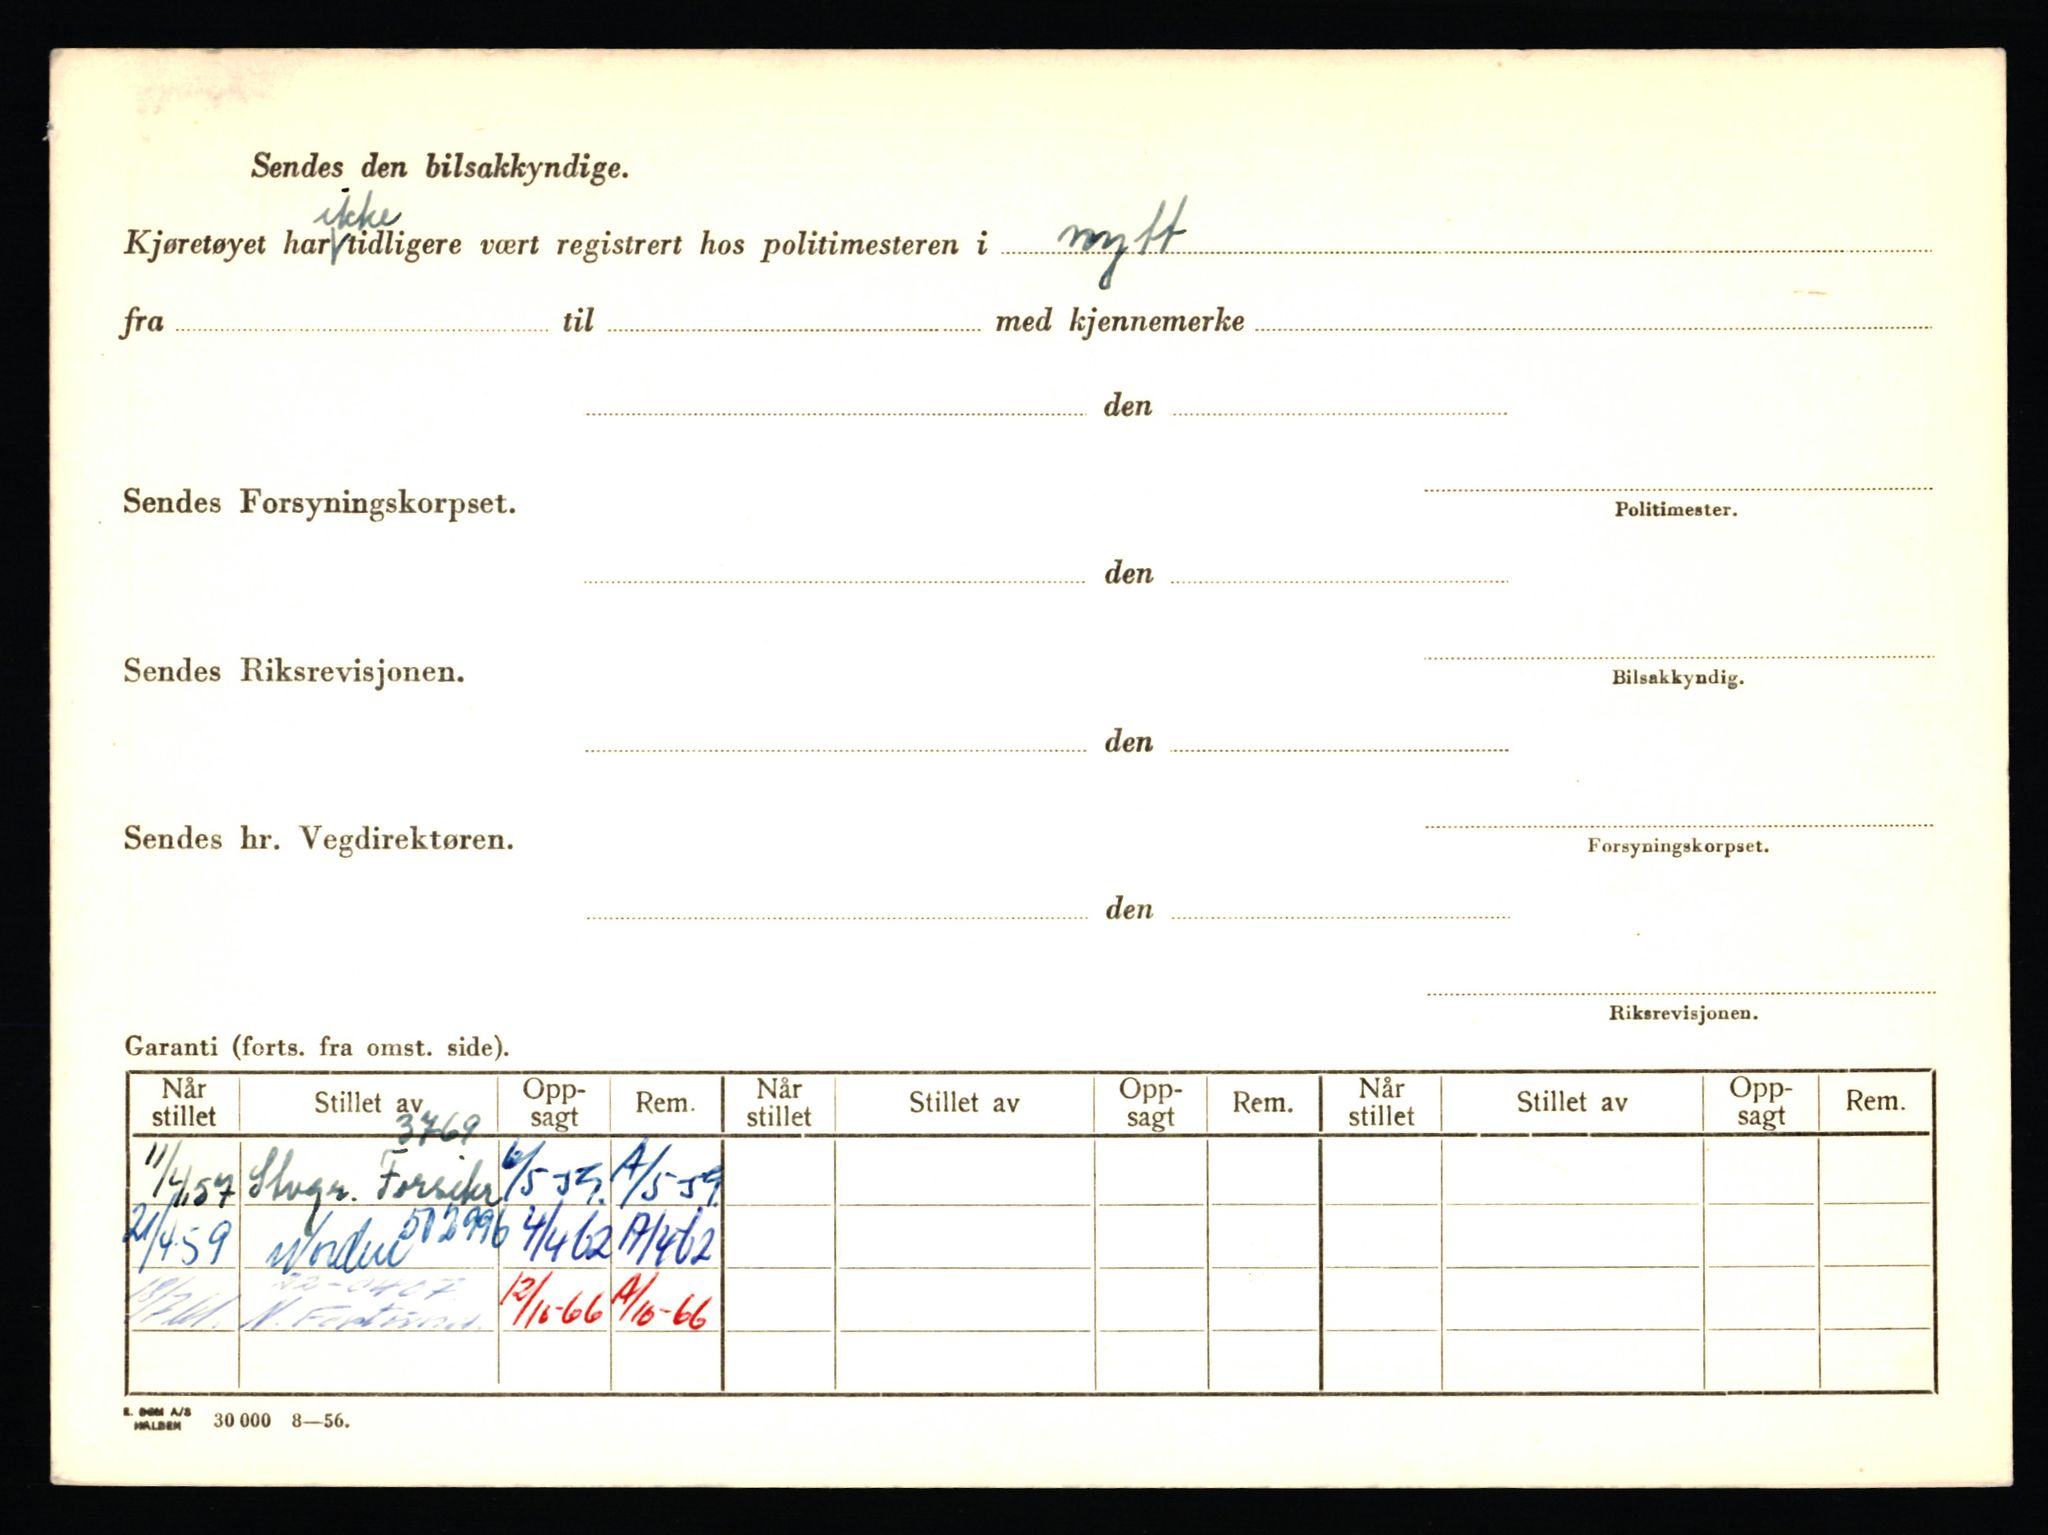 Sendes den bilsakkyndige.
ikke
Kjøretøyet har tidligere vært registrert hos politimesteren i nytt
fra til med kjennemerke
den
Sendes Forsyningskorpset.
Politimester.
den
Sendes Riksrevisjonen.
Bilsakkyndig.
den
Sendes hr. Vegdirektøren.
Forsyningskorpset.
den
Riksrevisjonen.
Garanti (forts. fra omst. side).
Når stillet Stillet av Opp-sagt Rem. Når stillet Stillet av Opp-sagt Rem. Når stillet Stillet av Opp-sagt Rem.
3769
11/4.57 Forsikr 6/5-59. A/5-59.
21/4.59 Norden 502996 4/4 62 A/4 62
12/10-66 A/10-66
HALDEN 30 000 8—56.